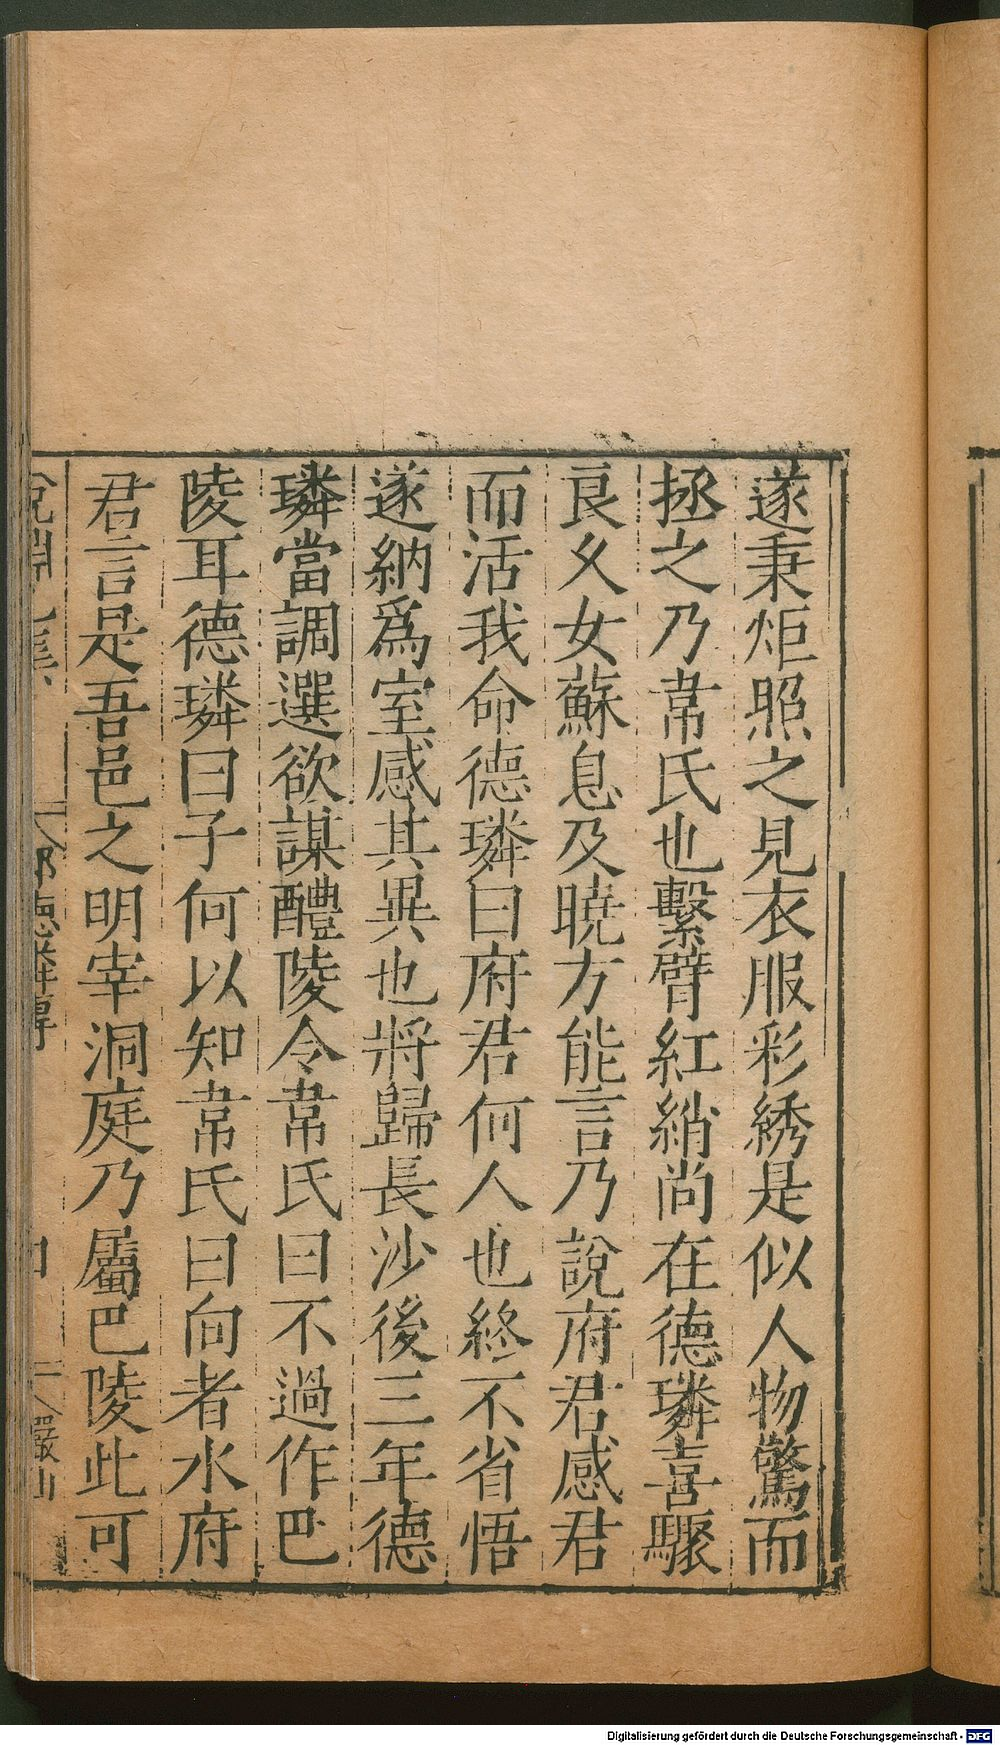 遂秉炬照之見衣服彩綉是似人物驚而
拯之乃韋氏也繫臂紅綃尚在德璘喜驟
良久女蘇息及曉方能言乃說府君感君
而活我命德璘曰府君何人也終不省悟
遂納爲室感其異也將歸長沙後三年德
璘當調選欲謀醴陵令韋氏曰不過作巴
陵耳德璘曰子何以知韋氏曰向者水府
君言是吾邑之明宰洞庭乃屬巴陵此可
德璘傳
Digitalisierung gefördert durch die Deutsche Forschungsgemeinschaft - DFG